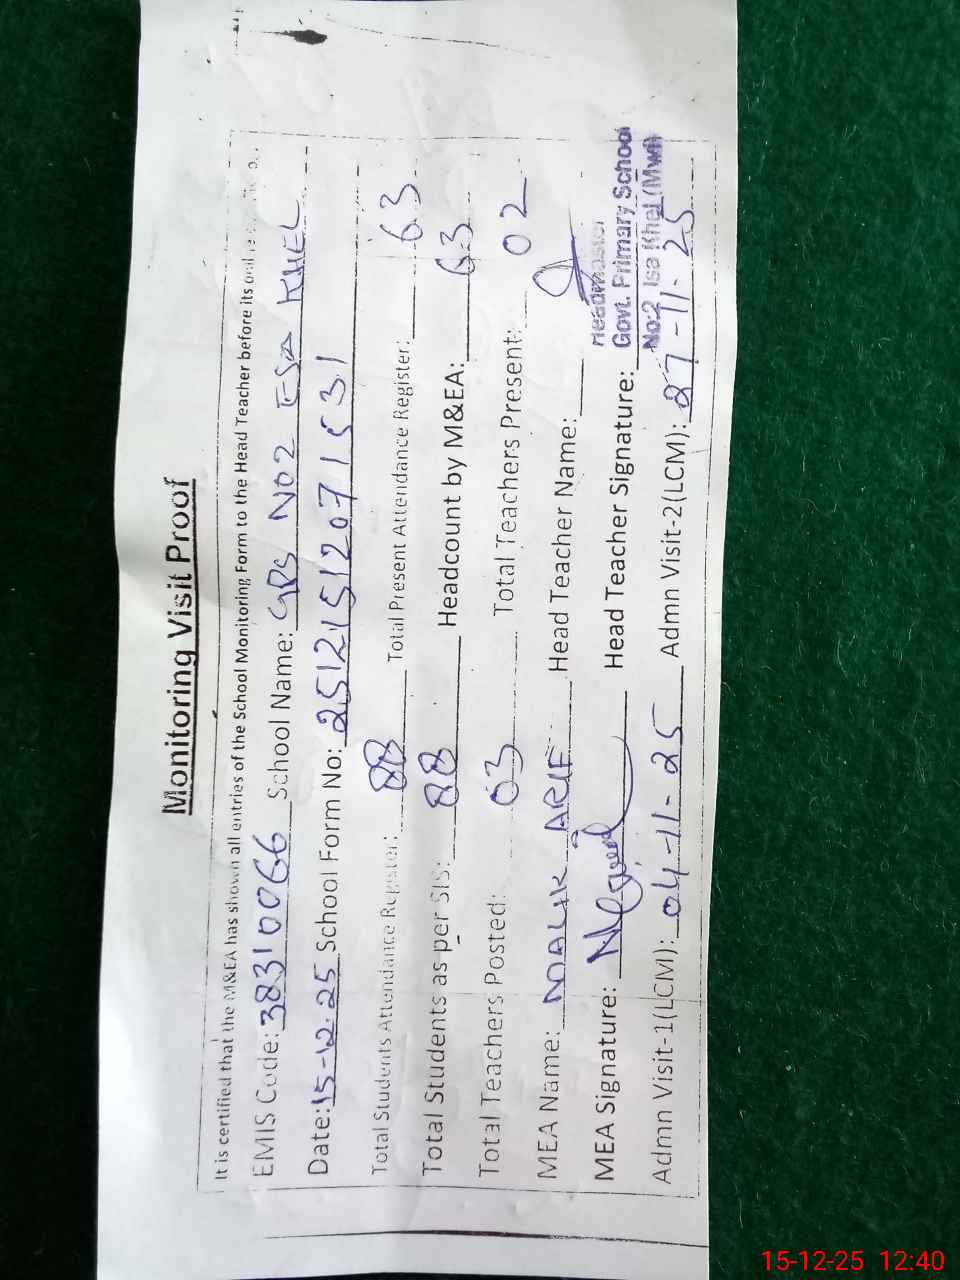 Monitoring Visit Proof
It is certified that the M&EA has shown all entries of the School Monitoring Form to the Head Teacher before its
EMIS Code: 38310066 School Name: GPS NO2 ESA KHEL
Date: 15-12-25 School Form No: 25121512071531
Total Students Attendance Register: 88 Total Present Attendance Register: 63
Total Students as per SIS: 88 Headcount by M&EA: 63
Total Teachers Posted: 03 Total Teachers Present: 02
MEA Name: MALIK ARIF Head Teacher Name:
MEA Signature: Head Teacher Signature:
Headmaster
Govt. Primary School
No:2 Isa Khel (Mwi)
Admn Visit-1(LCM): 04-11-25 Admn Visit-2(LCM): 27-11-25
15-12-25 12:40